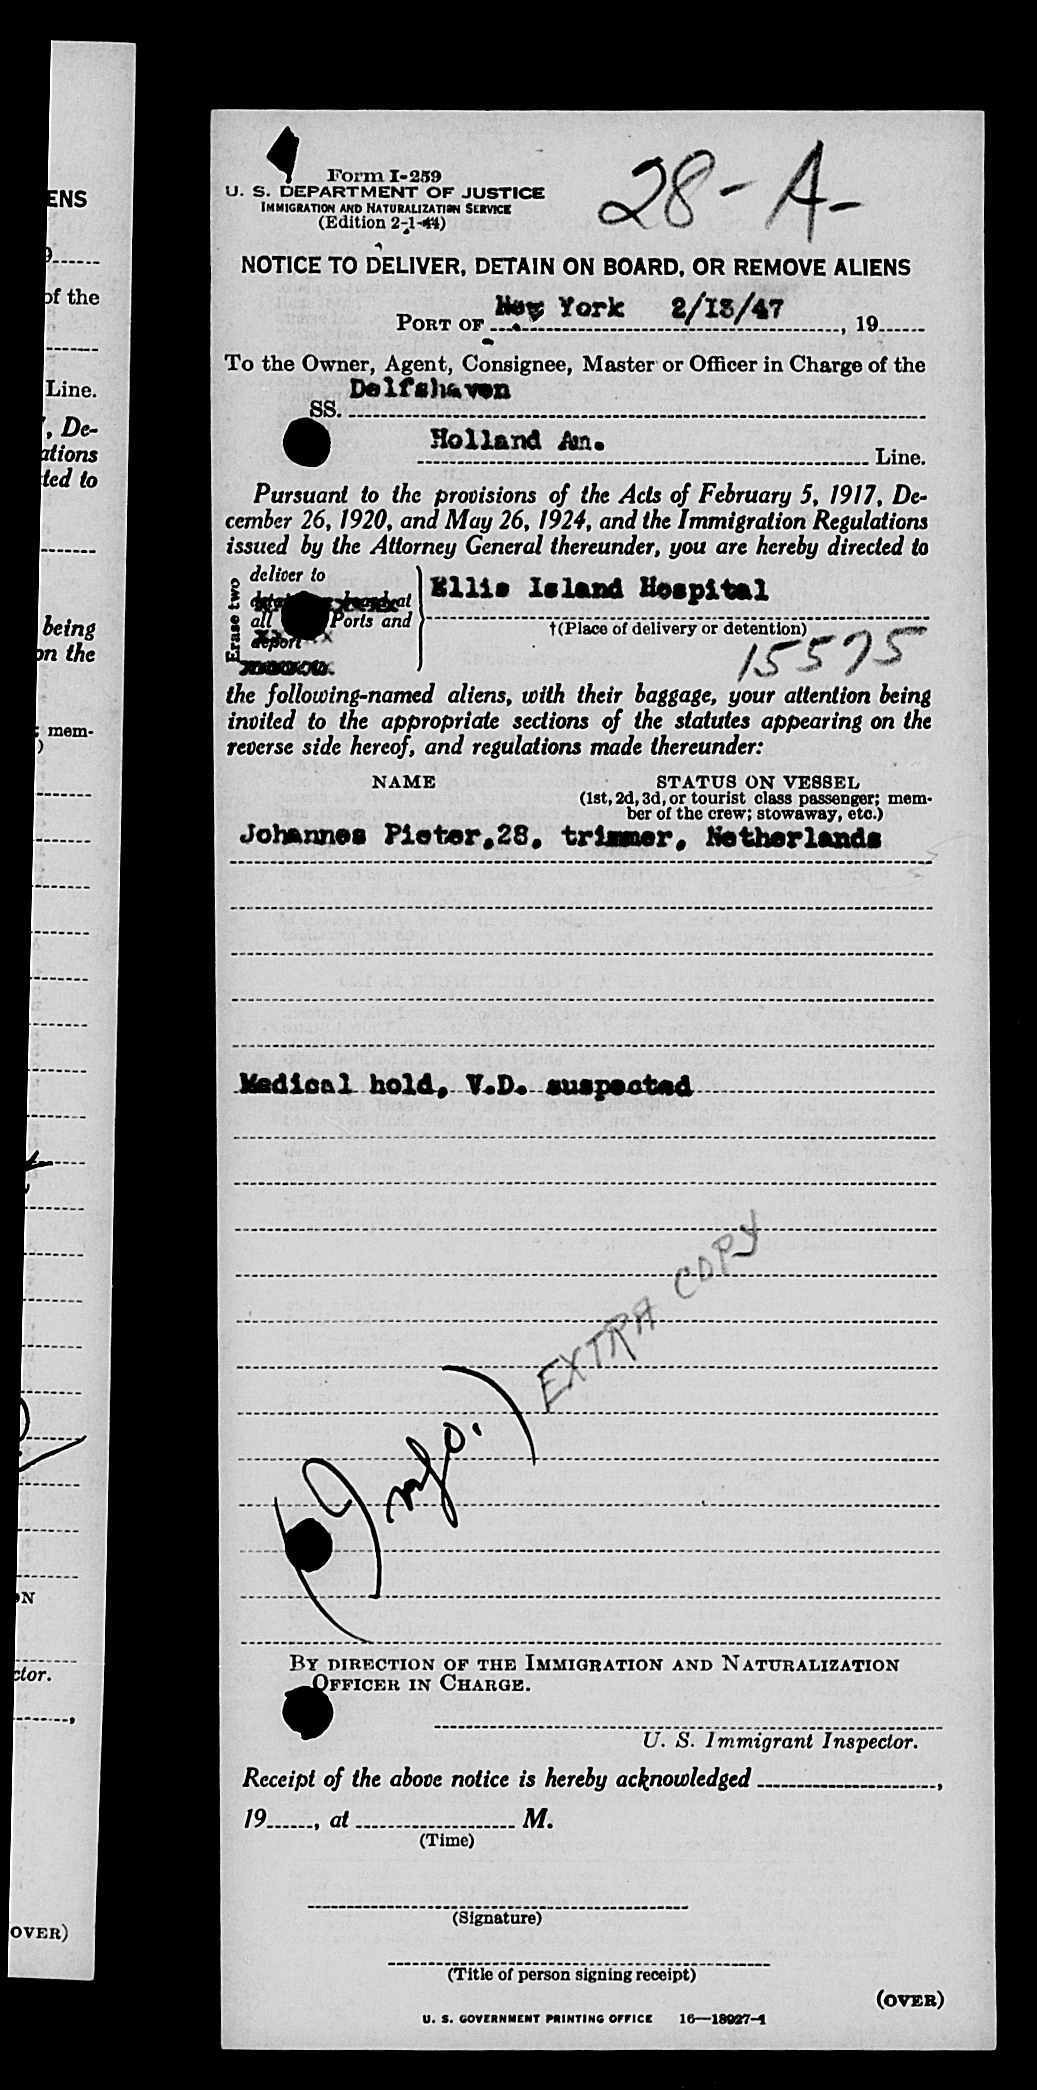 ENS
of the
Line.
, De-
ations
ted to
being
on the
; mem-
)
ON
ctor.
OVER)
28-A-
Form I-259
U. S. DEPARTMENT OF JUSTICE
IMMIGRATION AND NATURALIZATION SERVICE
(Edition 2-1-44)
NOTICE TO DELIVER, DETAIN ON BOARD, OR REMOVE ALIENS
PORT OF New York 2/13/47, 19
To the Owner, Agent, Consignee, Master or Officer in Charge of the
SS. Delfshaven
Holland Am. Line.
Pursuant to the provisions of the Acts of February 5, 1917, De-
cember 26, 1920, and May 26, 1924, and the Immigration Regulations
issued by the Attorney General thereunder, you are hereby directed to
Erase two
deliver to
at
all Ports and
deport
Ellis Island Hospital
†(Place of delivery or detention)
15575
the following-named aliens, with their baggage, your attention being
invited to the appropriate sections of the statutes appearing on the
reverse side hereof, and regulations made thereunder:
NAME STATUS ON VESSEL
(1st, 2d, 3d, or tourist class passenger; mem-
ber of the crew; stowaway, etc.)
Johannes Pieter, 28, trimmer, Netherlands
Medical hold, V.D. suspected
EXTRA COPY
(Info.)
BY DIRECTION OF THE IMMIGRATION AND NATURALIZATION
OFFICER IN CHARGE.
U. S. Immigrant Inspector.
Receipt of the above notice is hereby acknowledged ,
19 , at M.
(Time)
(Signature)
(Title of person signing receipt)
(OVER)
U. S. GOVERNMENT PRINTING OFFICE 16—18927-1